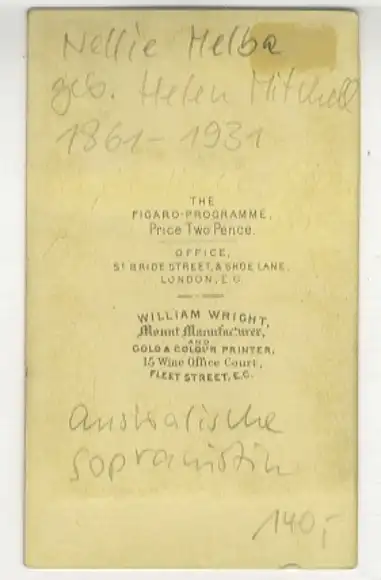 Nellie Melba
geb. Helen Mitchell
1861-1931
THE
FIGARO-PROGRAMME,
Price Two Pence.
OFFICE,
ST BRIDE STREET, & SHOE LANE,
LONDON, E.C.
WILLIAM WRIGHT,
Mount Manufacturer,
AND
GOLD & COLOUR PRINTER,
15 Wine Office Court,
FLEET STREET, E.C.
Australische
Sopranistin
140,-